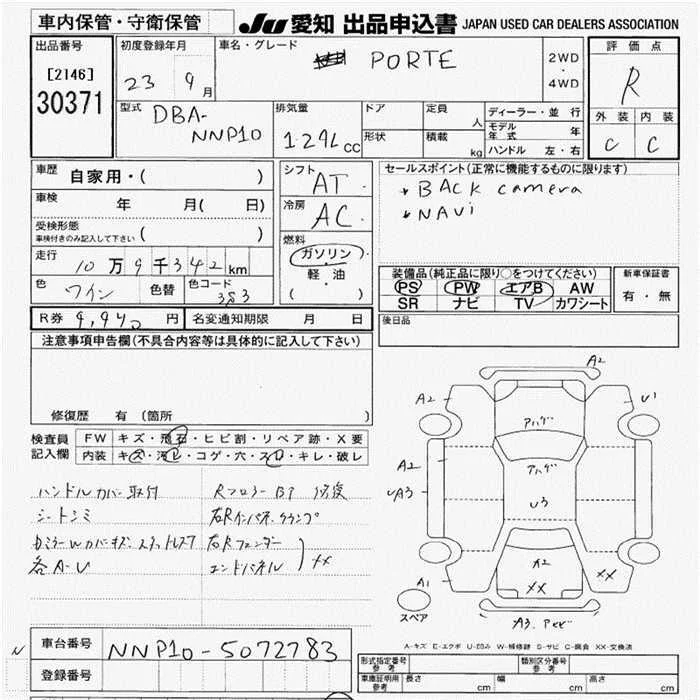 車内保管・守衛保管
JU 愛知 出品申込書 JAPAN USED CAR DEALERS ASSOCIATION
出品番号
[2146]
30371
初度登録年月
23 9月
車名・グレード
PORTE
2WD
・
4WD
評 価 点
R
外 装 内 装
C C
型式
DBA-
NNP10
排気量
1.29L cc
ドア
形状
定員 人
積載 kg
ディーラー・並 行
モデル年式 年
ハンドル 左・右
車歴
自家用・( )
車検 年 月( 日)
受検形態
車検付きのみ記入して下さい ( )
走行
10万9千342km
色 ワイン 色替 色コード 3S3
シフト
AT
冷房
AC
燃料
ガソリン
軽・油
( )
セールスポイント(正常に機能するものに限ります)
BACK camera
NAVi
装備品(純正品に限り○をつけてください)
PS PW エアB AW
SR ナビ TV カワシート
新車保証書
有・無
R券 9,940 円 名変通知期限 月 日
後日品
注意事項申告欄(不具合内容等は具体的に記入して下さい)
修復歴 有 (箇所 )
検査員
記入欄
FW キズ・飛石・ヒビ割・リペア跡・X要
内装 キズ・汚レ・コゲ・穴・スレ・キレ・破レ
ハンドルカバー取付
シートシミ
各A-U
右Rフェンダー
エンドパネル
XX
A2
A2
U1
A2
UA3
U3
A2
XX
XX
A1
スペア
A3.
A-キズ E-エクボ U-凹み W-補修跡 S-サビ C-腐食 XX-交換済
N
車台番号 NNP10-5072783
登録番号
形式指定番号
参考
類別区分番号
参考
車庫証明用
参考
長さ cm 幅 cm 高さ cm